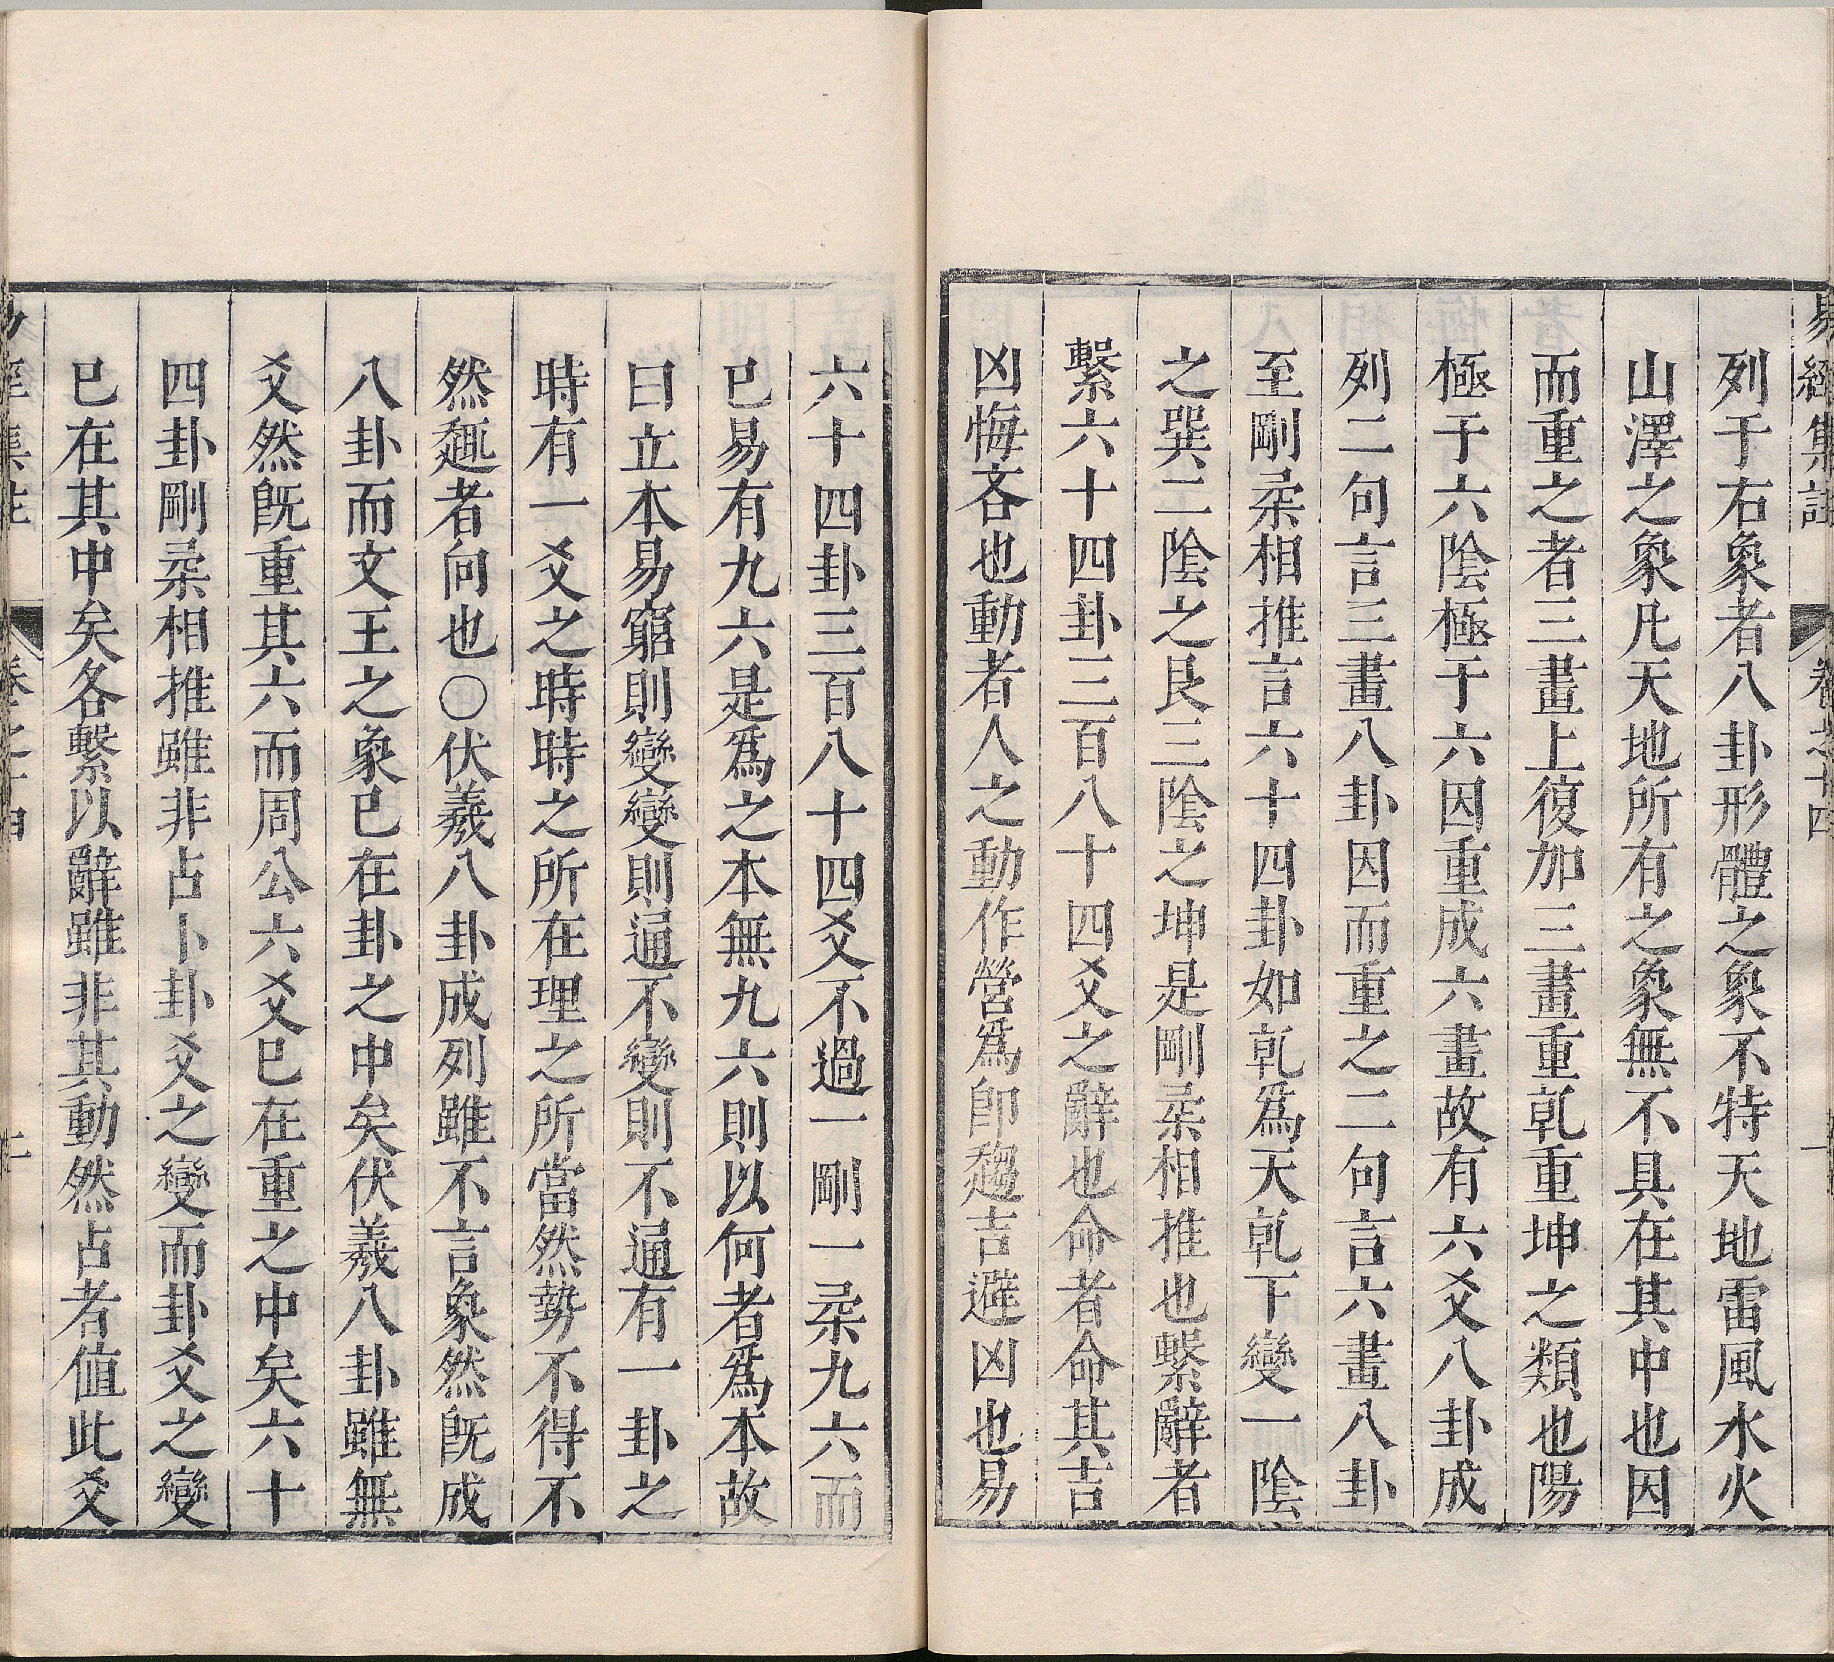 易經集註 卷之十四
列于右象者八卦形體之象不特天地雷風水火
山澤之象凡天地所有之象無不具在其中也因
而重之者三畫上復加三畫重乾重坤之類也陽
極于六陰極于六因重成六畫故有六爻八卦成
列二句言三畫八卦因而重之二句言六畫八卦
至剛柔相推言六十四卦如乾爲天乾下變一陰
之巽二陰之艮三陰之坤是剛柔相推也繫辭者
繫六十四卦三百八十四爻之辭也命者命其吉
凶悔吝也動者人之動作營爲卽趨吉避凶也易
六十四卦三百八十四爻不過一剛一柔九六而
已易有九六是爲之本無九六則以何者爲本故
曰立本易窮則變變則通不變則不通有一卦之
時有一爻之時時之所在理之所當然勢不得不
然趣者向也○伏羲八卦成列雖不言象然旣成
八卦而文王之象已在卦之中矣伏羲八卦雖無
爻然旣重其六而周公六爻已在重之中矣六十
四卦剛柔相推雖非占卜卦爻之變而卦爻之變
已在其中矣各繫以辭雖非其動然占者值此爻